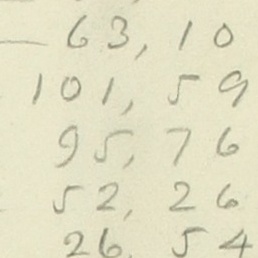 — 63, 10
101, 59
95, 76
52, 26
26, 54